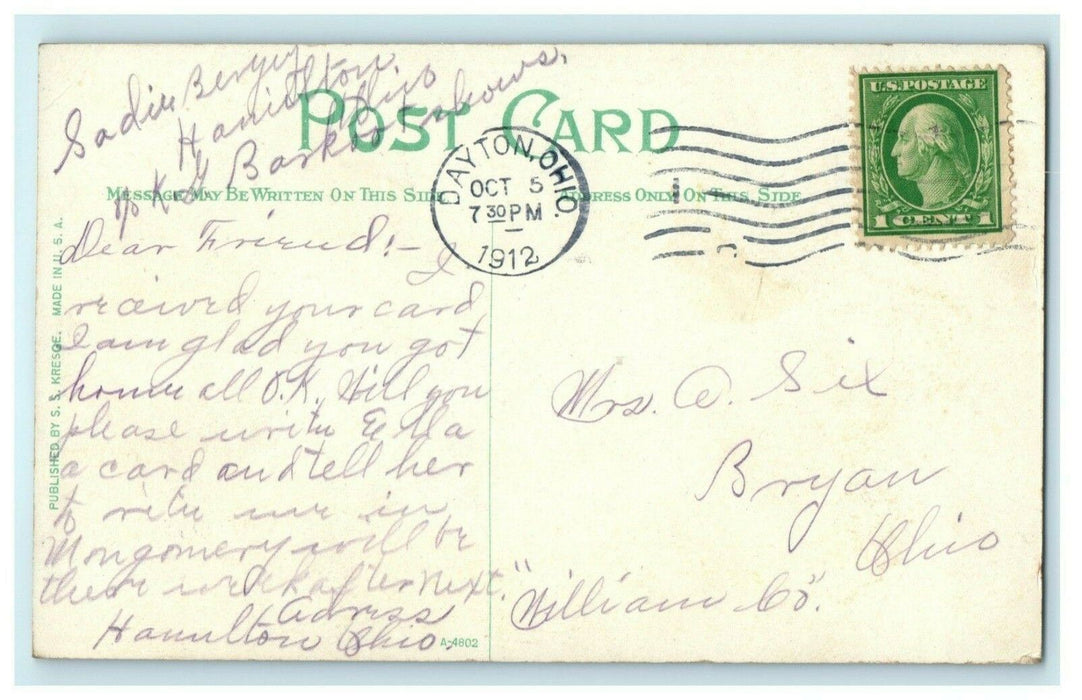 Sadie
Hamilton
Ohio
% K G Barkoot shows.
POST CARD
MESSAGE MAY BE WRITTEN ON THIS SIDE
ADDRESS ONLY ON THIS SIDE
DAYTON, OHIO.
OCT 5
7 30 PM
1912
U.S. POSTAGE
1 CENT 1
Dear Friend!- I
recieved your card
I am glad you got
home all O.K. Will you
please write Ella
a card and tell her
to write me in
Montgomery will be
there week after next.
Adress
Hamilton Ohio.
Mrs. A. Six
Bryan
Ohio
"William Co".
PUBLISHED BY S. S. KRESGE. MADE IN U. S. A.
A-4802